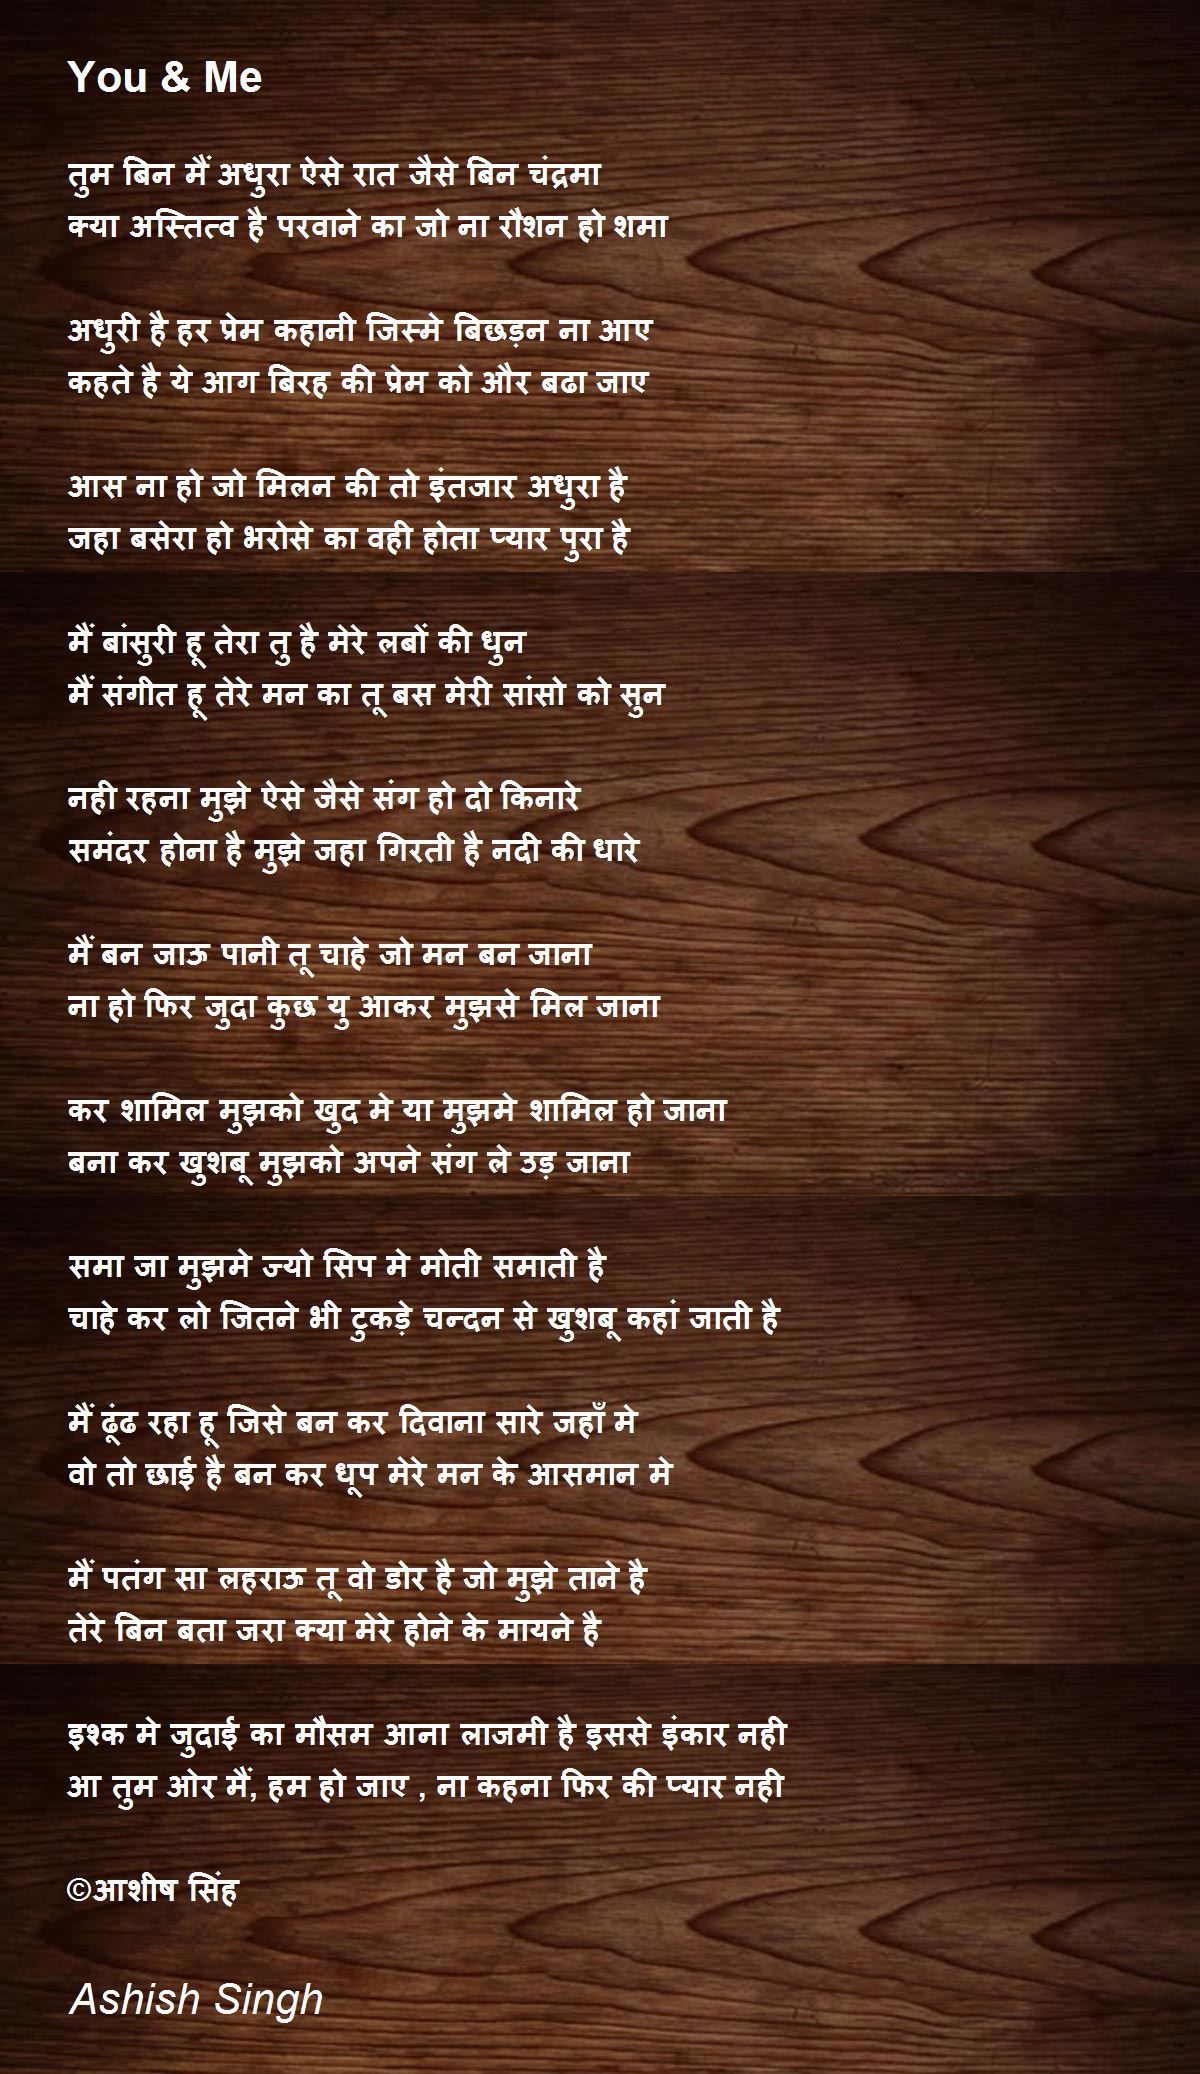 You & Me
तुम बिन मैं अधुरा ऐसे रात जैसे बिन चंद्रमा
क्या अस्तित्व है परवाने का जो ना रौशन हो शमा
अधुरी है हर प्रेम कहानी जिस्मे बिछड़न ना आए
कहते है ये आग बिरह की प्रेम को और बढा जाए
आस ना हो जो मिलन की तो इंतजार अधुरा है
जहा बसेरा हो भरोसे का वही होता प्यार पुरा है
मैं बांसुरी हू तेरा तु है मेरे लबों की धुन
मैं संगीत हू तेरे मन का तू बस मेरी सांसो को सुन
नही रहना मुझे ऐसे जैसे संग हो दो किनारे
समंदर होना है मुझे जहा गिरती है नदी की धारे
मैं बन जाऊ पानी तू चाहे जो मन बन जाना
ना हो फिर जुदा कुछ यु आकर मुझसे मिल जाना
कर शामिल मुझको खुद मे या मुझमे शामिल हो जाना
बना कर खुशबू मुझको अपने संग ले उड़ जाना
समा जा मुझमे ज्यो सिप मे मोती समाती है
चाहे कर लो जितने भी टुकड़े चन्दन से खुशबू कहां जाती है
मैं ढूंढ रहा हू जिसे बन कर दिवाना सारे जहाँ मे
वो तो छाई है बन कर धूप मेरे मन के आसमान मे
मैं पतंग सा लहराऊ तू वो डोर है जो मुझे ताने है
तेरे बिन बता जरा क्या मेरे होने के मायने है
इश्क मे जुदाई का मौसम आना लाजमी है इससे इंकार नही
आ तुम ओर मैं, हम हो जाए , ना कहना फिर की प्यार नही
©आशीष सिंह
Ashish Singh